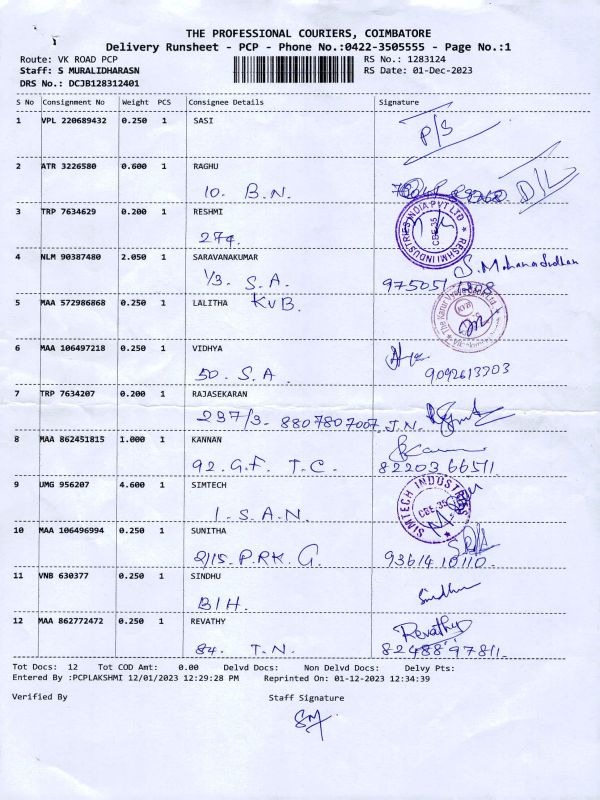 THE PROFESSIONAL COURIERS, COIMBATORE
Delivery Runsheet - PCP - Phone No.:0422-3505555 - Page No.:1
Route: VK ROAD PCP RS No.: 1283124
Staff: S MURALIDHARASN RS Date: 01-Dec-2023
DRS No.: DCJB128312401
S No Consignment No Weight PCS Consignee Details Signature
1 VPL 220689432 0.250 1 SASI
P/S
2 ATR 3226580 0.600 1 RAGHU
10. B.N. D/L
3 TRP 7634629 0.200 1 RESHMI
274. RESHMI INDUSTRIES INDIA PVT LTD CBE-35
4 NLM 90387480 2.050 1 SARAVANAKUMAR
1/3. S.A. S.Mohana
5 MAA 572986868 0.250 1 LALITHA KVB.
The Karur Vysya Ltd. KVB
6 MAA 106497218 0.250 1 VIDHYA
50. S.A. 9092613703
7 TRP 7634207 0.200 1 RAJASEKARAN
297/3. 8807807007. J.N.
8 MAA 862451815 1.000 1 KANNAN
92. G.F. T.C. 8220366511
9 UMG 956207 4.600 1 SIMTECH
1. S.A.N. SIMTECH INDUSTRIES CBE-35
10 MAA 106496994 0.250 1 SUNITHA
2/15. P.RK. G. 9361410110.
11 VNB 630377 0.250 1 SINDHU
B1H. Sindhu
12 MAA 862772472 0.250 1 REVATHY
84. T.N. Revathy
8248897811.
Tot Docs: 12 Tot COD Amt: 0.00 Delvd Docs: Non Delvd Docs: Delvy Pts:
Entered By :PCPLAKSHMI 12/01/2023 12:29:28 PM Reprinted On: 01-12-2023 12:34:39
Verified By Staff Signature
SM